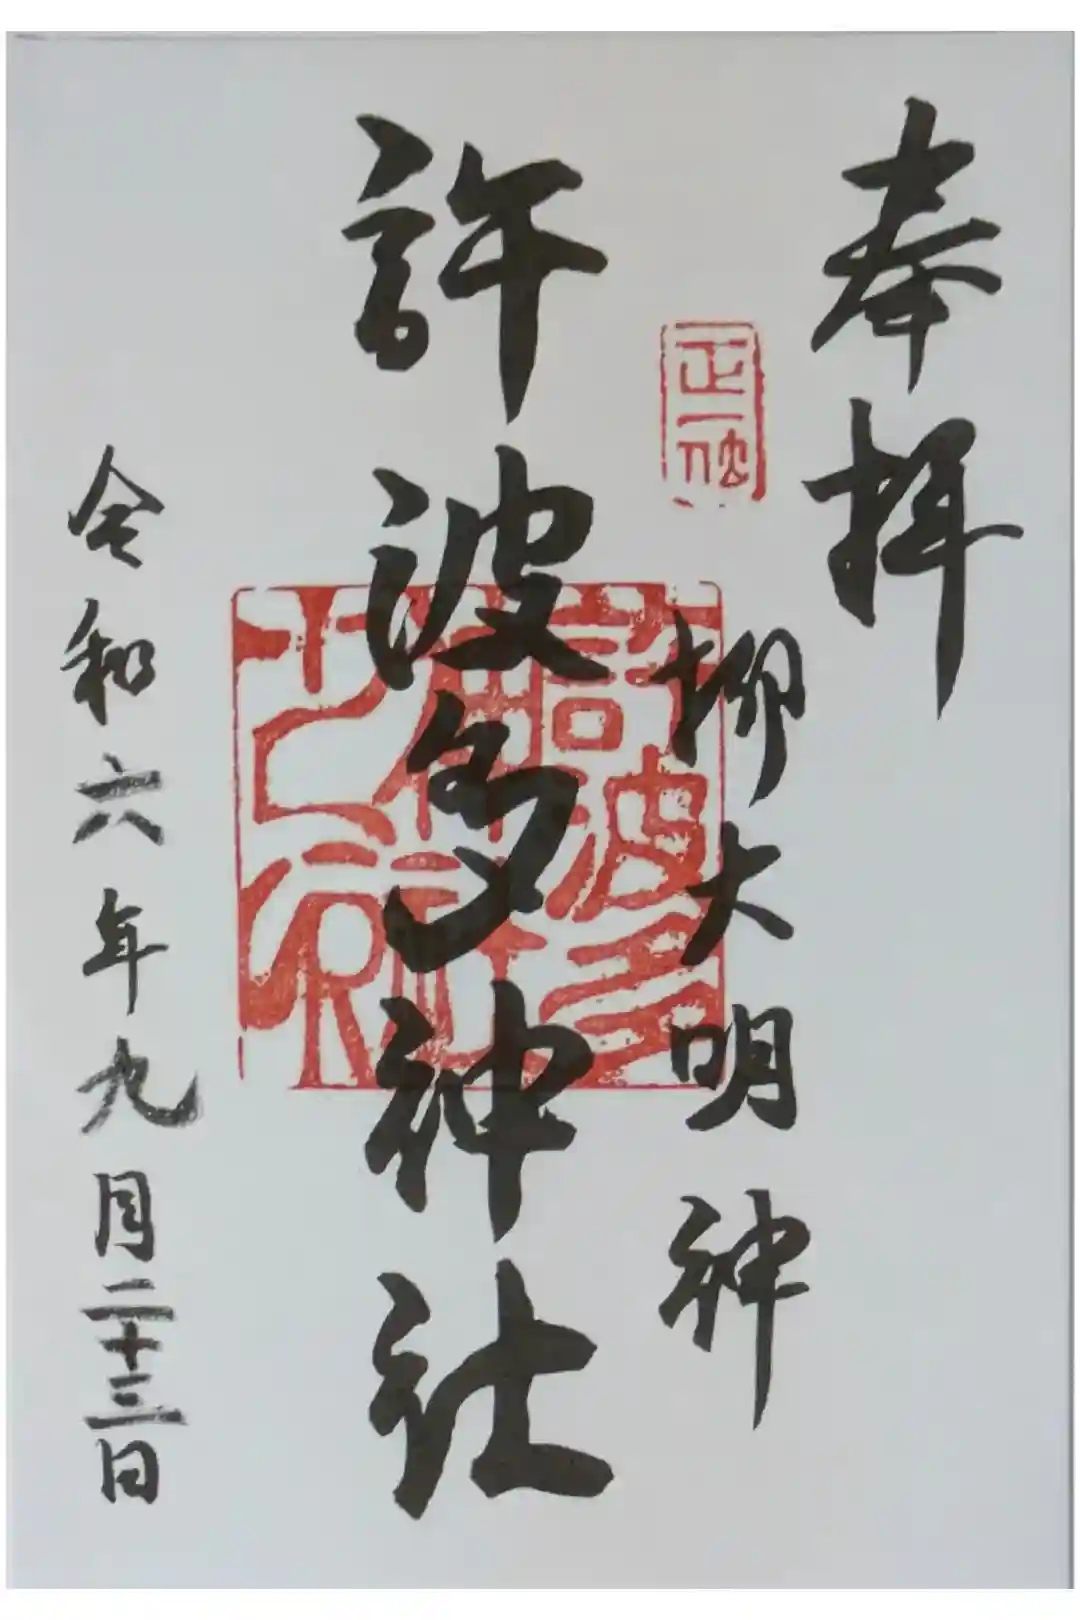 奉拝
正一位
柳大明神
許波多神社
許波多
神社
之印
令和六年九月二十三日